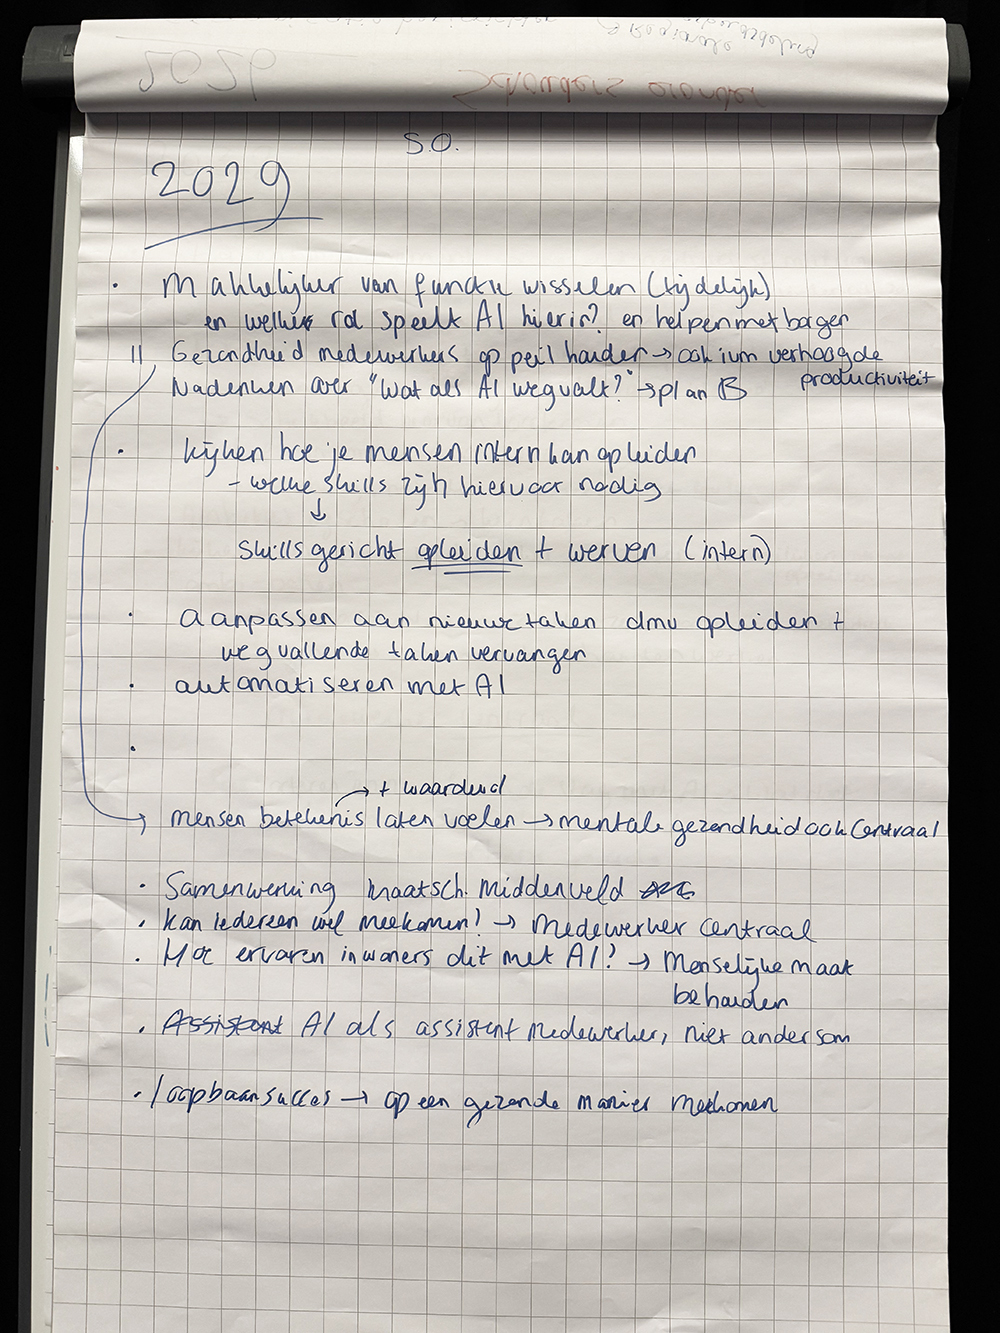 2029
Schouders eronder
S.O.
2029
· Makkelijker van functie wisselen (tijdelijk)
en welke rol speelt AI hierin? en helpen met borgen
|| Gezondheid medewerkers op peil houden → ook ivm verhoogde
productiviteit
Nadenken over "Wat als AI wegvalt?" → plan B
· kijken hoe je mensen intern kan opleiden
- welke skills zijn hiervoor nodig
↓
skillsgericht opleiden + werven (intern)
· aanpassen aan nieuwe taken dmv opleiden +
wegvallende taken vervangen
· automatiseren met AI
·
→ + waardevol
mensen betekenis laten voelen → mentale gezondheid ook centraal
· Samenwerking maatsch. middenveld
· kan iedereen wel meekomen? → Medewerker centraal
· Hoe ervaren inwoners dit met AI? → Menselijke maat
behouden
· Assistent AI als assistent medewerker, niet andersom
· loopbaansucces → op een gezonde manier meekomen